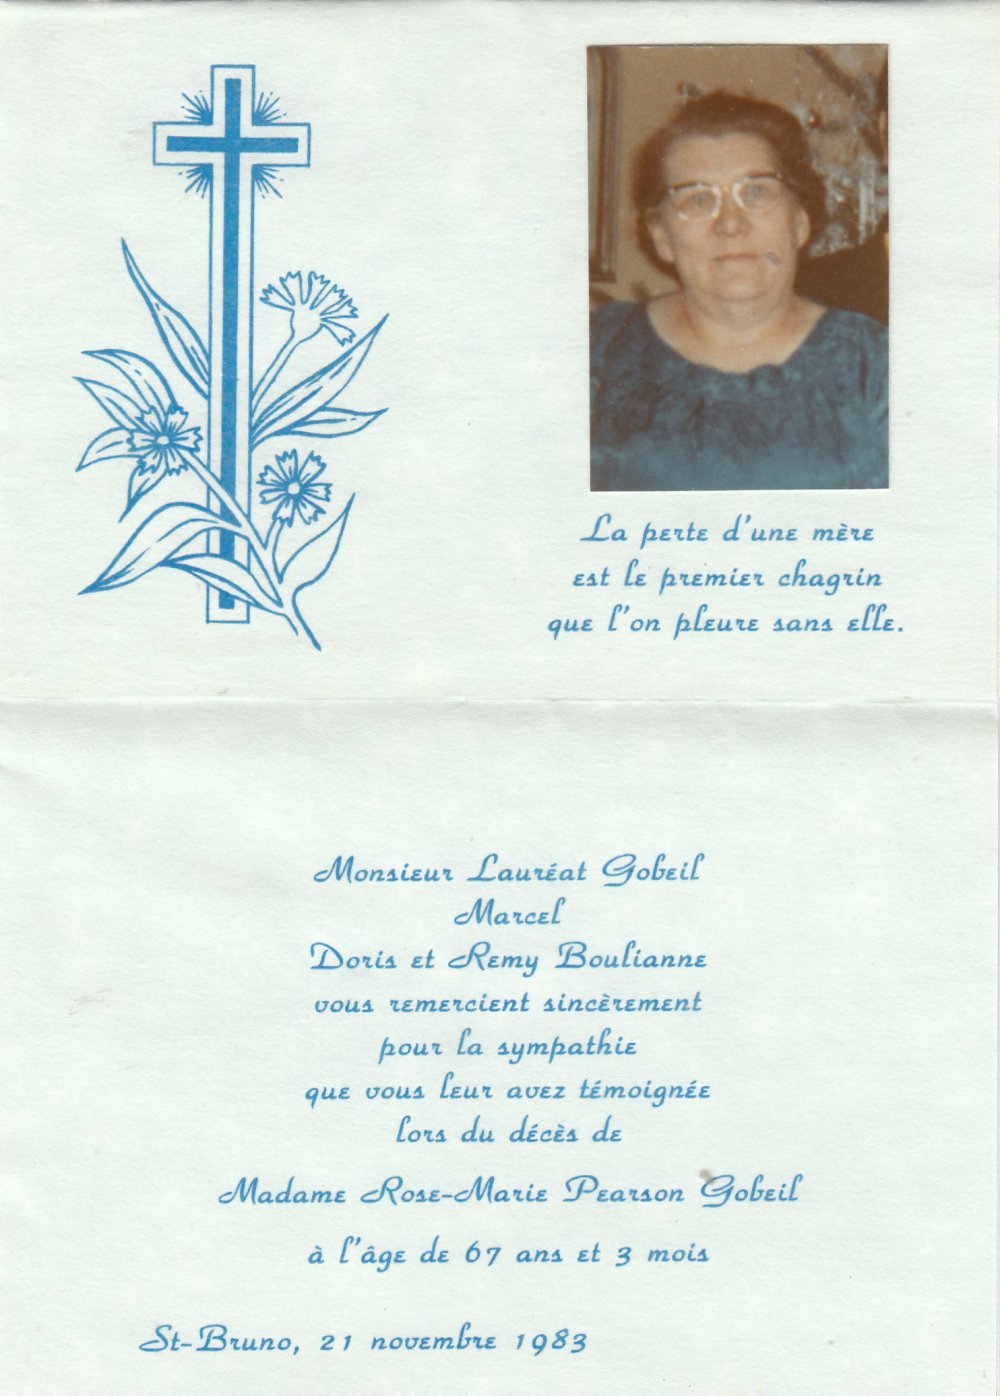 La perte d'une mère
est le premier chagrin
que l'on pleure sans elle.
Monsieur Lauréat Gobeil
Marcel
Doris et Remy Boulianne
vous remercient sincèrement
pour la sympathie
que vous leur avez témoignée
lors du décès de
Madame Rose-Marie Pearson Gobeil
à l'âge de 67 ans et 3 mois
St-Bruno, 21 novembre 1983